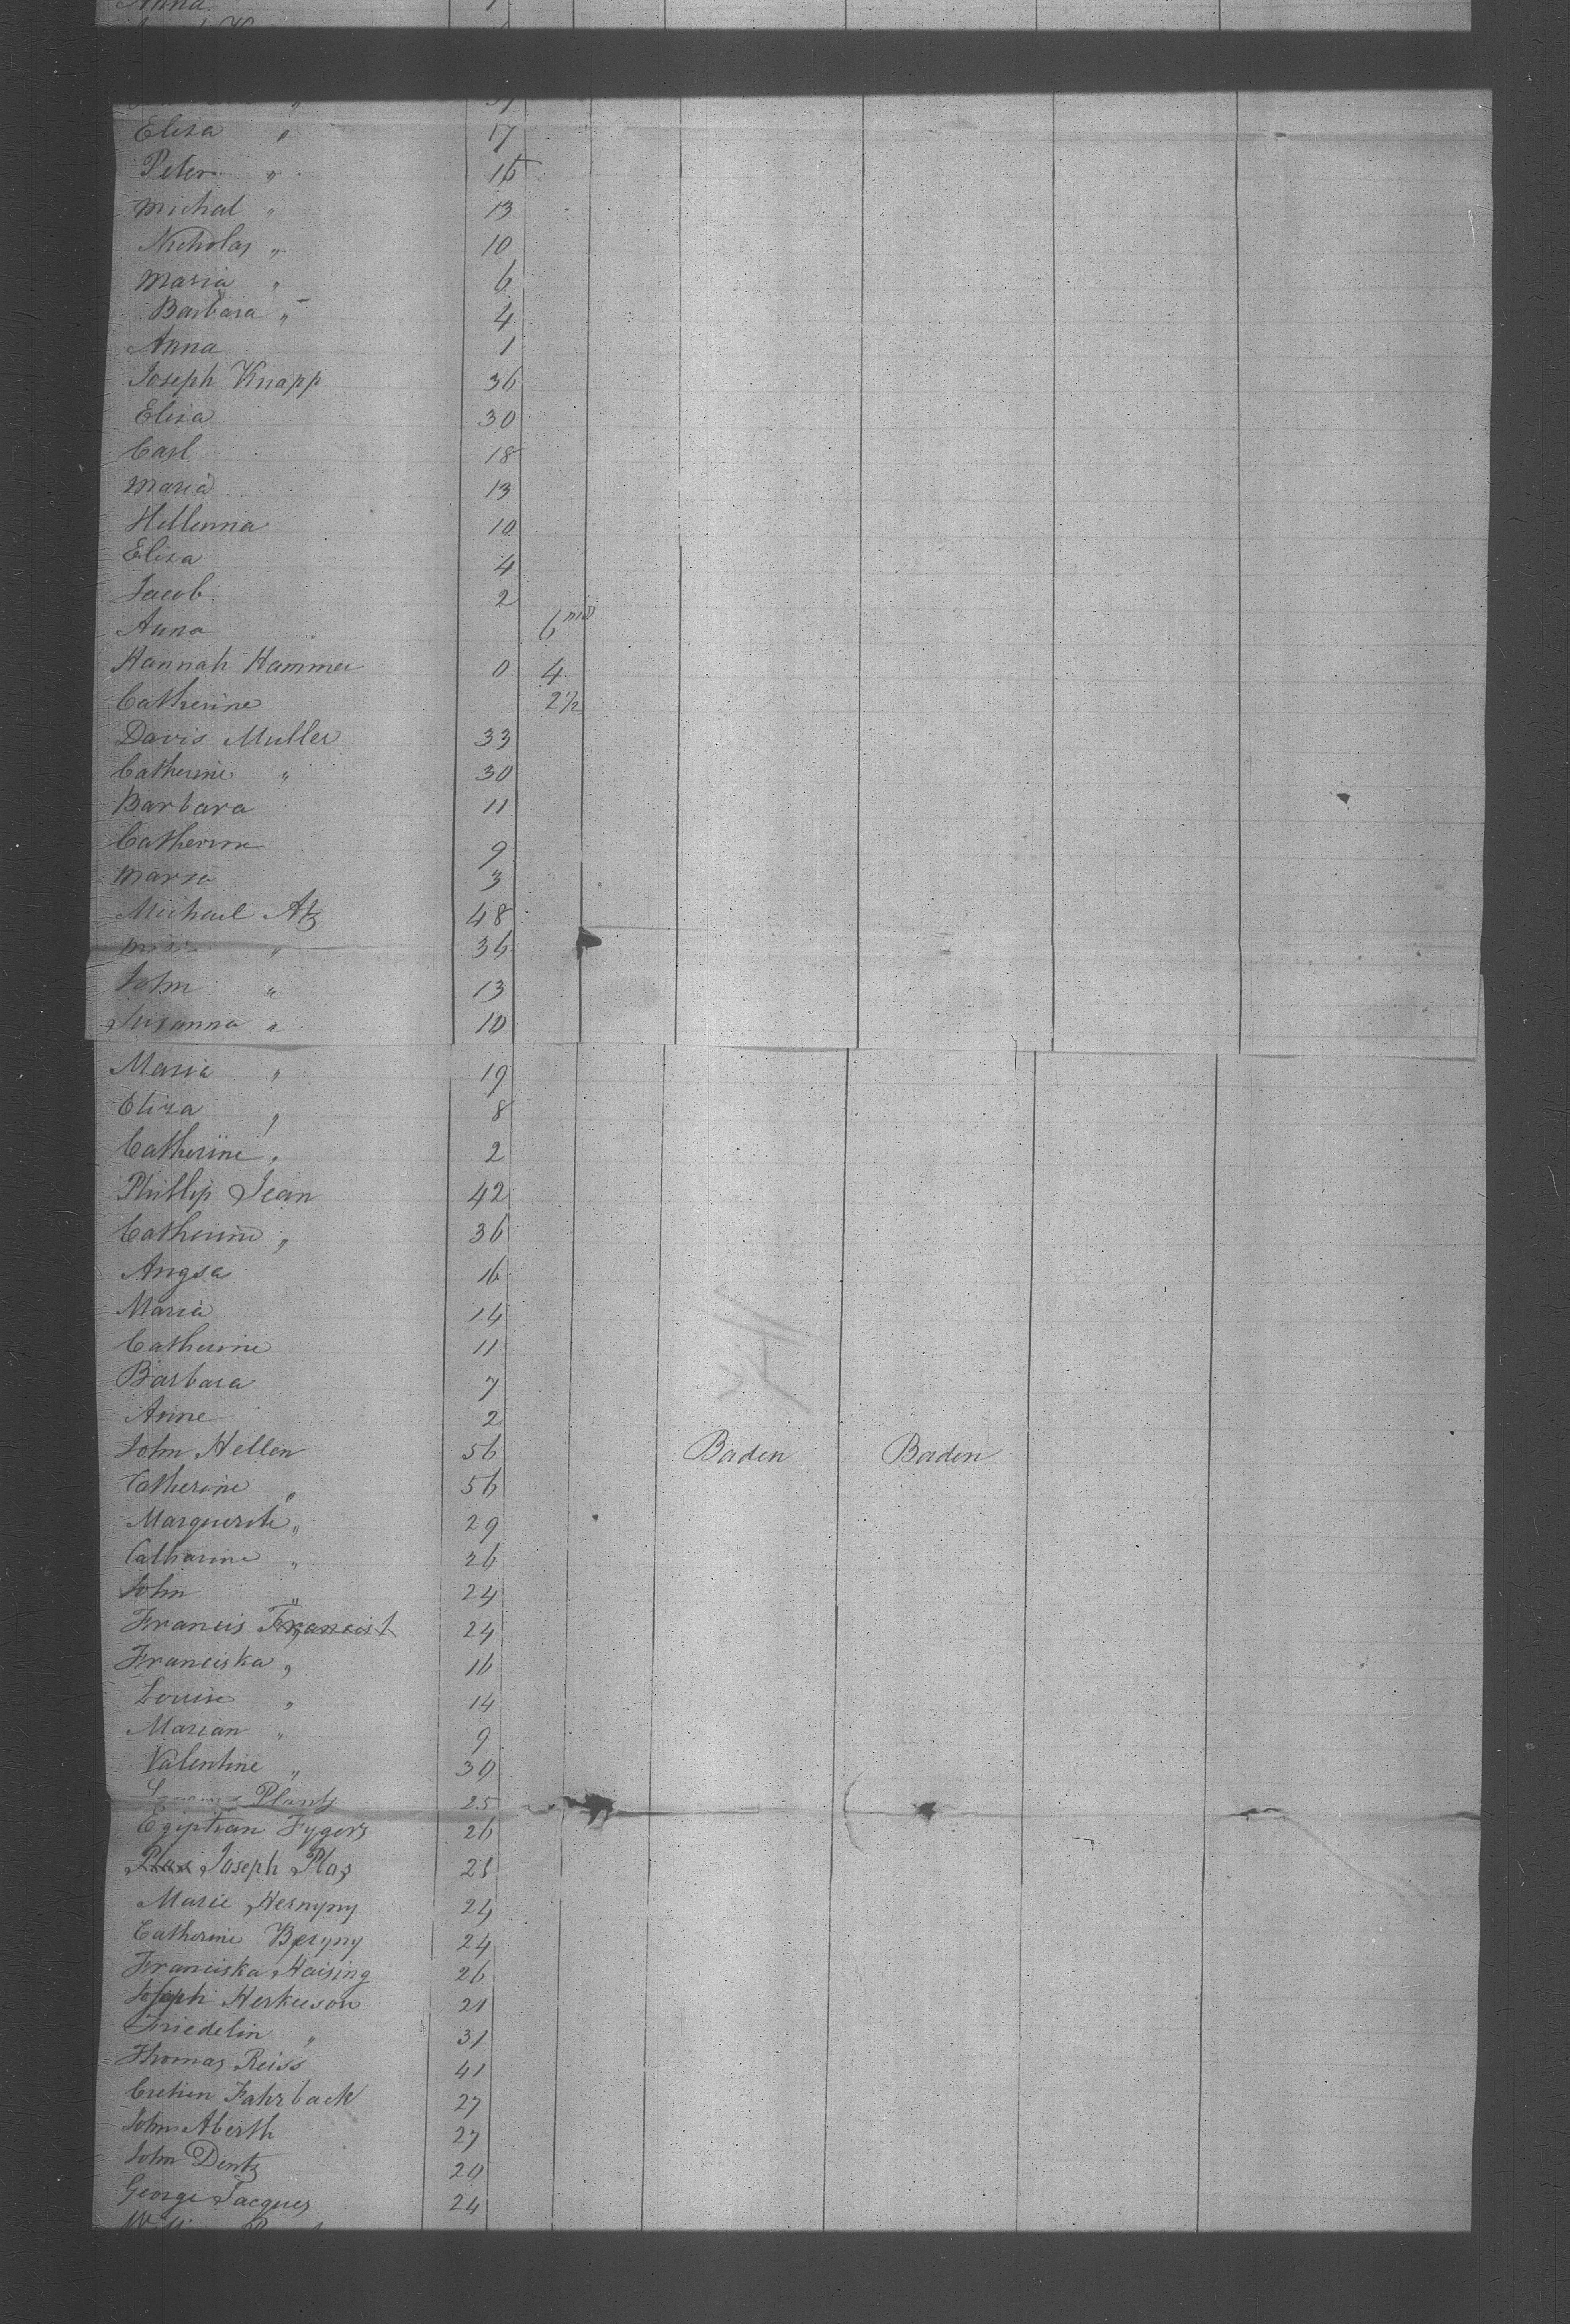 Anna
Eliza " 17
Peter " 16
Michal " 13
Nicholas " 10
Maria " 6
Barbara " 4
Anna 1
Joseph Knapp 36
Eliza 30
Carl 18
Maria 13
Hellenna 10
Eliza 4
Jacob 2
Anna 6 mo
Hannah Hammer 0 4
Catherine 2 1/2
Davis Muller 33
Catherine " 30
Barbara 11
Catherine 9
Maria 3
Michael Atz 48
Maria " 36
John " 13
Susanna " 10
Maria " 19
Eliza " 8
Catherine " 2
Phillip Jean 42
Catherine " 36
Angsa 16
Maria 14
Catherine 11
Barbara 7
Anne 2
John Hellen 56 Baden Baden
Catherine " 56
Marguerite " 29
Catharine " 26
John " 24
Francis Francist 24
Franciska " 16
Louise " 14
Marian " 9
Valentine " 30
Plantz 25
Egiptian Fygers 26
Plas Joseph Plaz 28
Marie Hernyny 24
Catherine Beryny 24
Franciska Haising 26
Joseph Herkuson 21
Friedelin " 31
Thomas Reiss 41
Cretien Fahrback 27
John Aberth 27
John Dentz 20
George Jacques 24